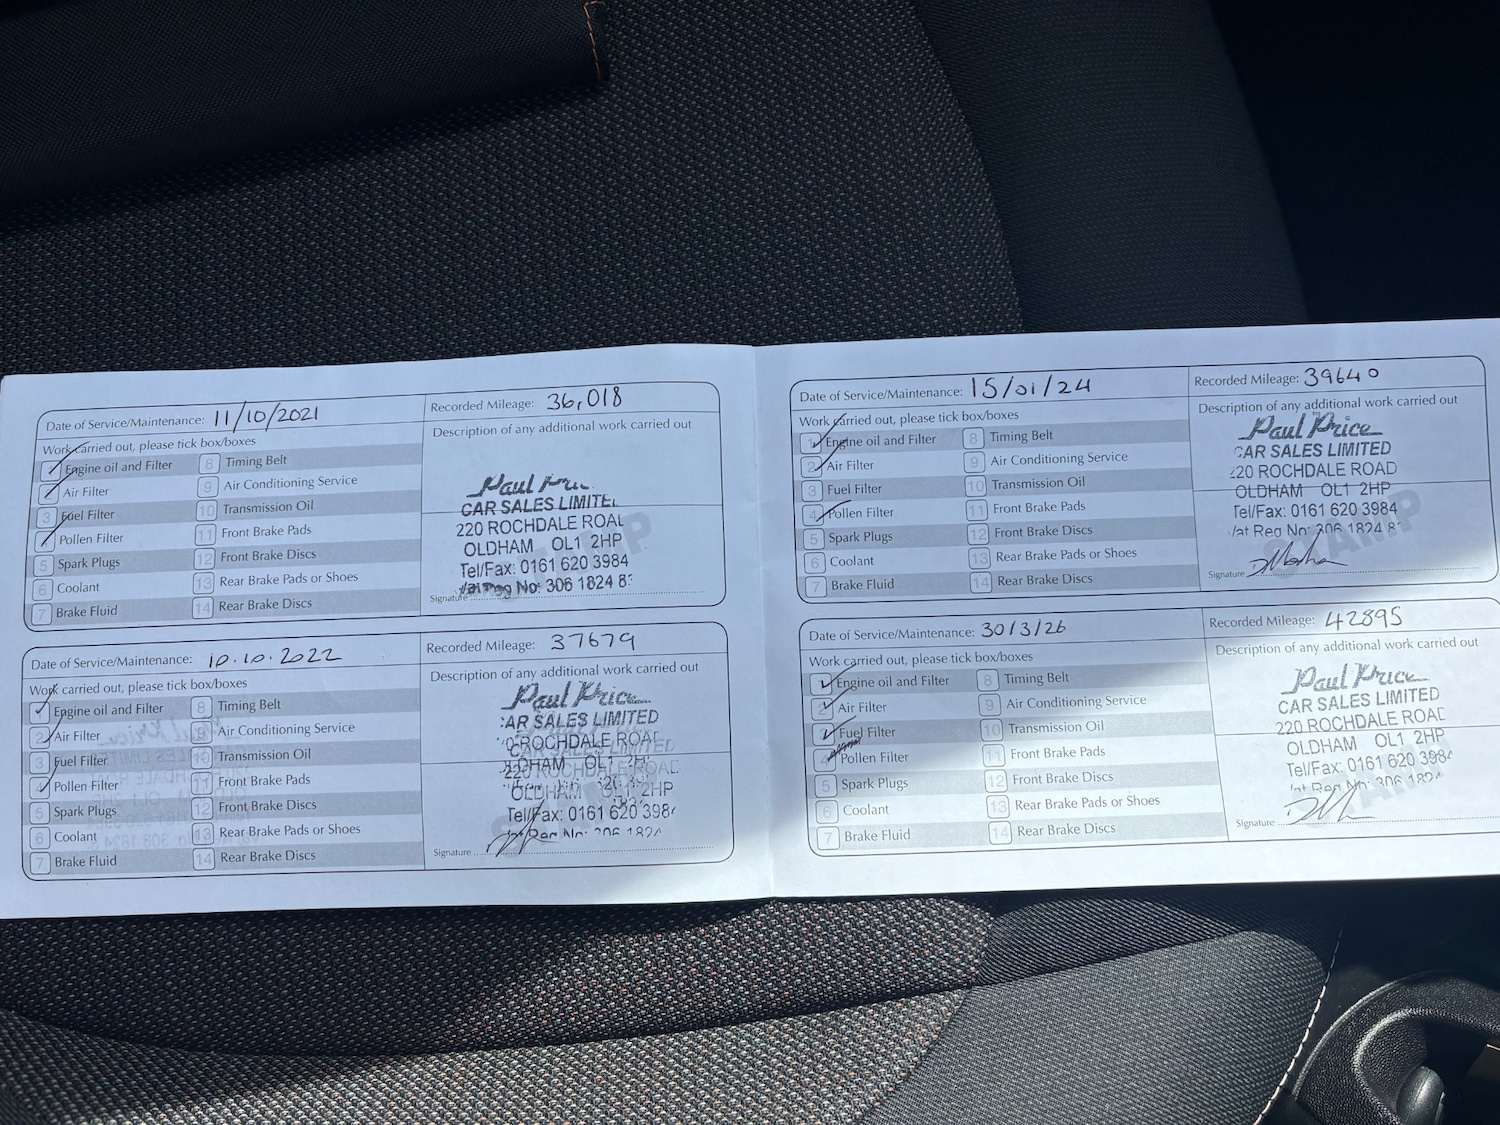 Date of Service/Maintenance: 11/10/2021
Recorded Mileage: 36,018
Work carried out, please tick box/boxes
Description of any additional work carried out
Engine oil and Filter 8 Timing Belt
Air Filter 9 Air Conditioning Service
3 Fuel Filter 10 Transmission Oil
Pollen Filter 11 Front Brake Pads
5 Spark Plugs 12 Front Brake Discs
6 Coolant 13 Rear Brake Pads or Shoes
7 Brake Fluid 14 Rear Brake Discs
Paul
CAR SALES LIMITE
220 ROCHDALE ROA
OLDHAM OL1 2HP
Tel/Fax: 0161 620 3984
No: 306 1824 8
Signature
Date of Service/Maintenance: 10.10.2022
Recorded Mileage: 37679
Work carried out, please tick box/boxes
Description of any additional work carried out
Engine oil and Filter 8 Timing Belt
2 Air Filter 9 Air Conditioning Service
3 Fuel Filter 10 Transmission Oil
4 Pollen Filter 11 Front Brake Pads
5 Spark Plugs 12 Front Brake Discs
6 Coolant 13 Rear Brake Pads or Shoes
7 Brake Fluid 14 Rear Brake Discs
Paul Price
AR SALES LIMITED
ROCHDALE ROA
OLDHAM OL1 2HP
Tel/Fax: 0161 620 398
Reg No: 306 1824
Signature
Date of Service/Maintenance: 15/01/24
Recorded Mileage: 39640
Work carried out, please tick box/boxes
Description of any additional work carried out
1 Engine oil and Filter 8 Timing Belt
2 Air Filter 9 Air Conditioning Service
3 Fuel Filter 10 Transmission Oil
4 Pollen Filter 11 Front Brake Pads
5 Spark Plugs 12 Front Brake Discs
6 Coolant 13 Rear Brake Pads or Shoes
7 Brake Fluid 14 Rear Brake Discs
Paul Price
CAR SALES LIMITED
220 ROCHDALE ROAD
OLDHAM OL1 2HP
Tel/Fax: 0161 620 3984
Vat Reg No: 306 1824 8
STAMP
Signature
Date of Service/Maintenance: 30/3/26
Recorded Mileage: 42895
Work carried out, please tick box/boxes
Description of any additional work carried out
Engine oil and Filter 8 Timing Belt
2 Air Filter 9 Air Conditioning Service
Fuel Filter 10 Transmission Oil
4 Pollen Filter 11 Front Brake Pads
5 Spark Plugs 12 Front Brake Discs
6 Coolant 13 Rear Brake Pads or Shoes
7 Brake Fluid 14 Rear Brake Discs
Paul Price
CAR SALES LIMITED
220 ROCHDALE ROAD
OLDHAM OL1 2HP
Tel/Fax: 0161 620 3984
Reg No: 306 1824
Signature